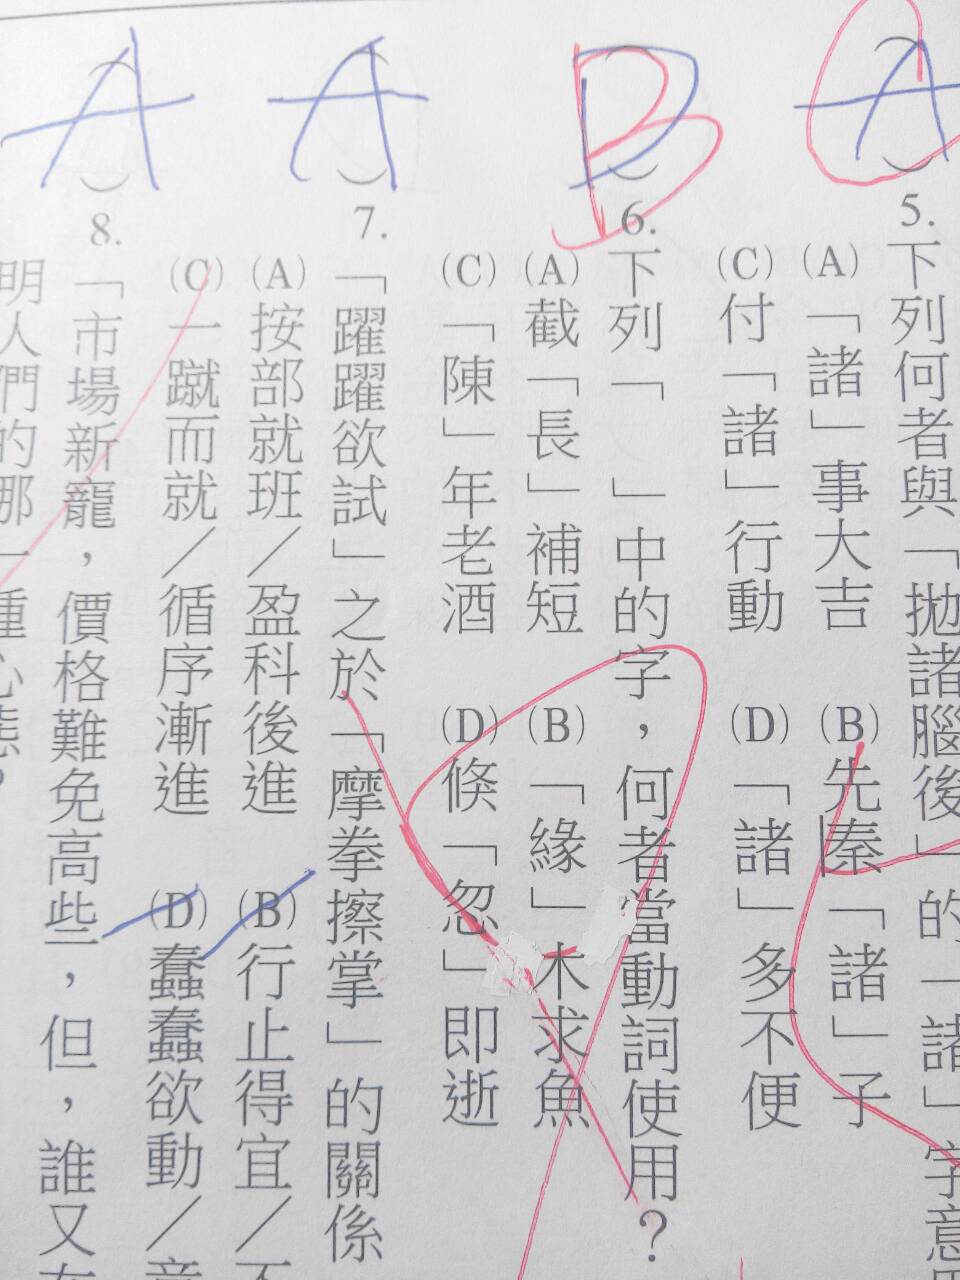 A
5.
下列何者與「拋諸腦後」的「諸」字意
(A)「諸」事大吉
(B)先秦「諸」子
(C)付「諸」行動
(D)「諸」多不便
B
6.
下列「 」中的字，何者當動詞使用？
(A)截「長」補短
(B)「緣」木求魚
(C)「陳」年老酒
(D)倏「忽」即逝
A
7.
「躍躍欲試」之於「摩拳擦掌」的關係
(A)按部就班／盈科後進
(B)行止得宜／不
(C)一蹴而就／循序漸進
(D)蠢蠢欲動／
A
8.
「市場新寵，價格難免高些，但，誰又
明人們的那一種心態？